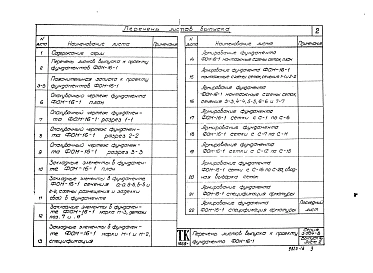 Перечень листов выпуска
2
N листа
Наименование листа
Примечание
1
Содержание серии
2
Перечень листов выпуска к проекту
фундаментов ФОН-16-1
3-5
Пояснительная записка к проекту
фундаментов ФОН-16-1
6
Опалубочный чертеж фундамента
ФОН-16-1 план
7
Опалубочный чертеж фундамен-
та ФОН-16-1 разрез 1-1
8
Опалубочный чертеж фундамен-
та ФОН-16-1 разрез 2-2
9
Опалубочный чертеж фундамен-
та ФОН-16-1 разрез 3-3
10
Закладные элементы в фундамен-
те ФОН-16-1 план
11
Закладные элементы в фундаменте
ФОН-16-1 сечения
свай в фундаменте
12
Закладные элементы в фундамен-
те ФОН-16-1 марка М-3, детали
13
Закладные элементы в фундамен-
те ФОН-16-1 марки М-1 и М-2,
спецификация
N листа
Наименование листа
Примечание
14
Армирование фундамента
ФОН-16-1 монтажные схемы сеток, план
15
Армирование фундамента ФОН-16-1
монтажные схемы сеток, сечения 1-1 и 2-2
16
Армирование фундамента
ФОН-16-1 монтажные схемы сеток,
сечения 3-3, 4-4, 5-5, 6-6 и 7-7
17
Армирование фундамента
ФОН-16-1 сетки с С-1 по С-6
18
Армирование фундамента
ФОН-16-1 сетки с С-7 по С-11
19
Армирование фундамента
ФОН-16-1 сетки с С-12 по С-15
20
Армирование фундамента
ФОН-16-1 сетки с С-16 по
выборка сеток
21
Армирование фундамента
ФОН-16-1 спецификация арматуры
22
Армирование фундамента
ФОН-16-1 спецификация арматуры
Последний
лист
ТК
Перечень листов выпуска к проекту
фундамента ФОН-16-1
Серия
Лист 2